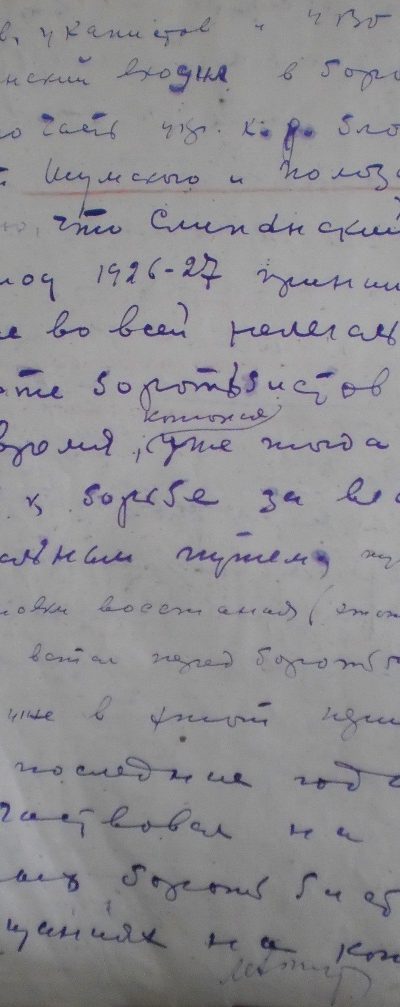 в, укапистов и УВО
нский входил в боро
ю часть укр. к. д. бло
Шумского и Полоз
что Слипанский
иод 1926-27 прини
е во всей нелегаль
оте боротьбистов
которая
время, уже тогда
к борьбе за вла
альным путем,
овки восстания (этот
встал перед боротьб
уже в этот пери
последние год
частвовал на
ных боротьбист
щаниях на ко